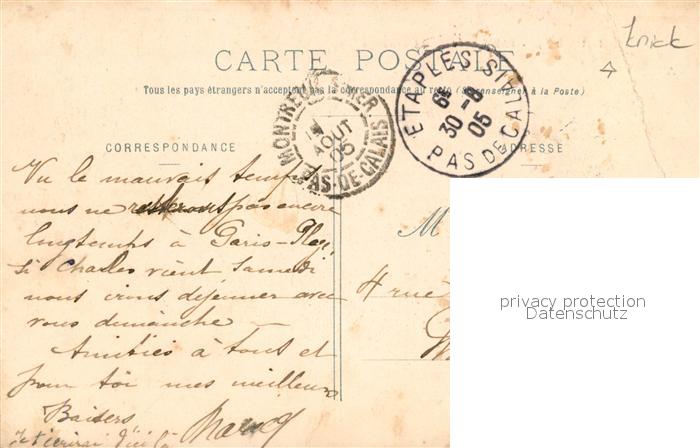 knick
CARTE POSTALE
Tous les pays étrangers n'acceptent pas la correspondance au recto (Se renseigner à la Poste)
MONTREUIL S-MER. PAS-DE-CALAIS
AOUT
05
ETAPLES PAS DE CALAIS
30 -8
05
CORRESPONDANCE
ADRESSE
Vu le mauvais temps
nous ne resterons pas encore
longtemps à Paris-Plage
si Charles vient Samedi
nous irons déjeuner avec
vous dimanche —
Amitiés à tous et
pour toi mes meilleurs
Baisers
Je t'écrirai d'ici là
M
4 rue
privacy protection
Datenschutz